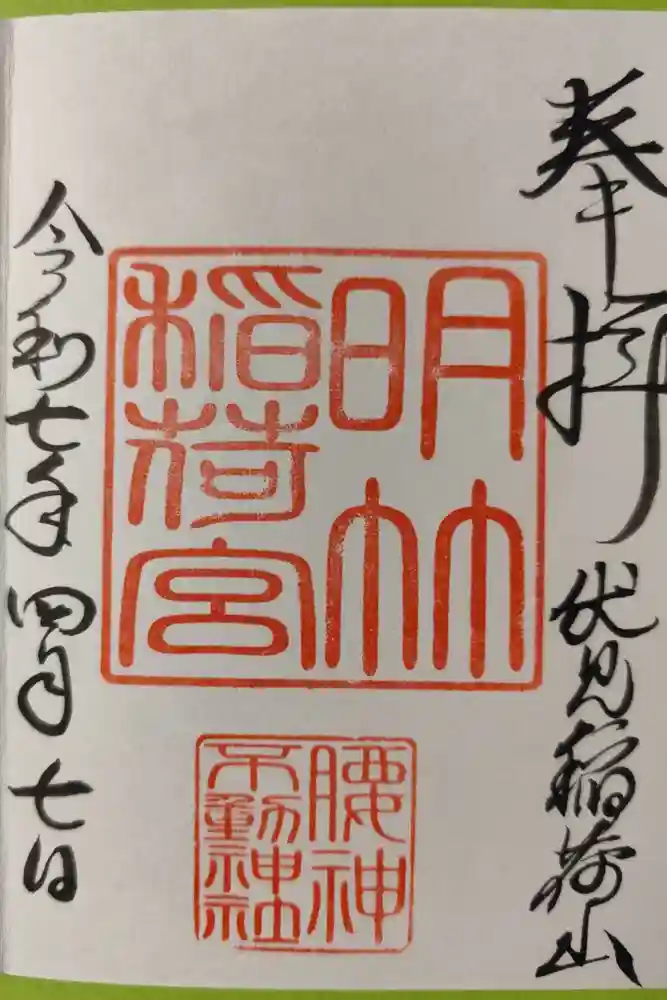 奉拝 伏見稲荷山
明竹
稲荷宮
腰神
不動神社
令和七年四月七日